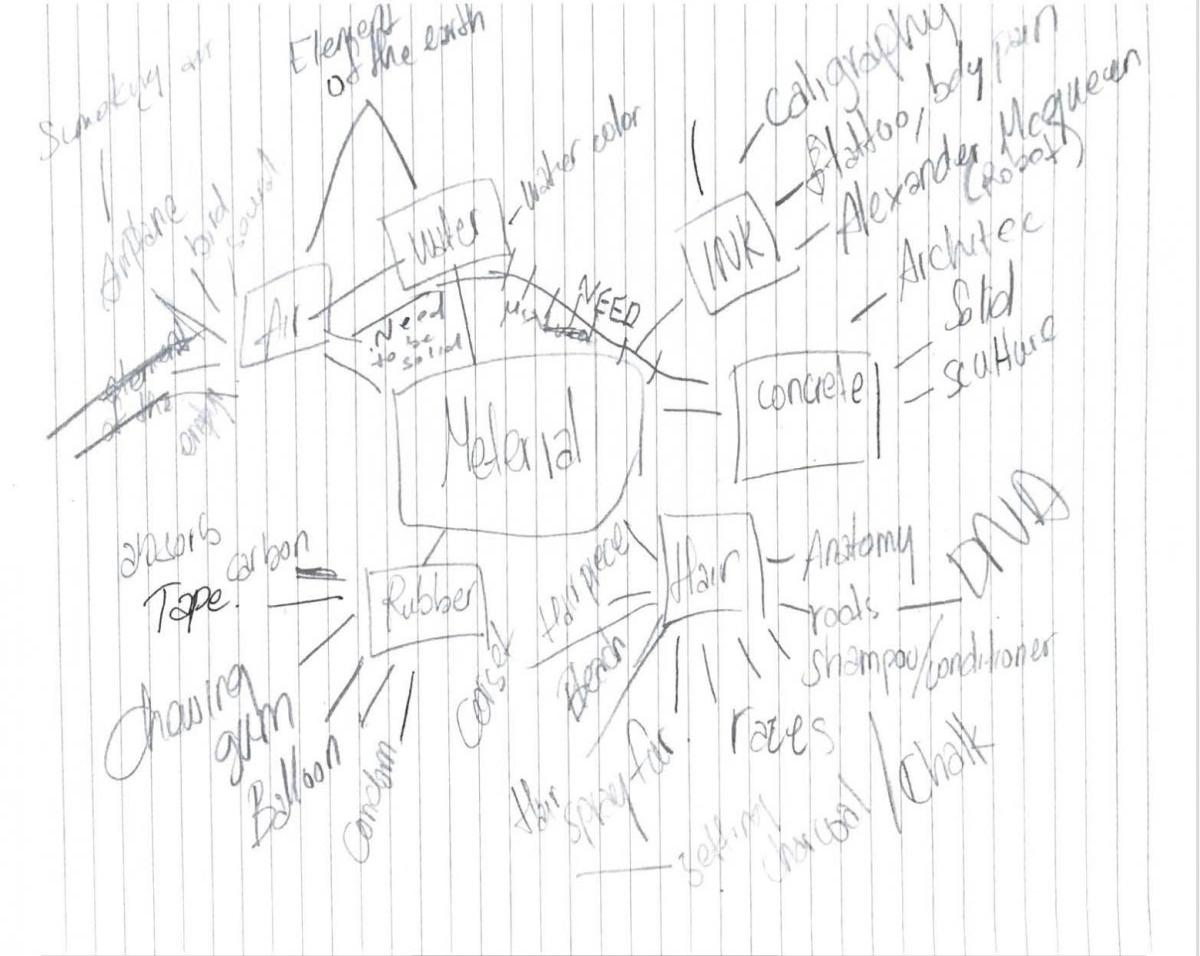 Element
of the earth
Caligraphy
tattoo, body pain
Alexander Mcquean
(Robot)
Airplane
bird
sound
Water
water color
INK
Architec
Solid
Air
Need
to be
solid
NEED
concrete
Meterial
element
of the
Carbon
Tape
Rubber
Hair piece
Hair
Anatomy
DNA
roots
Shampou/conditioner
Bleach
Corset
Chawing
gum
Balloon
Condom
Hair
spray
fur
races
setting
charcoal / Chalk